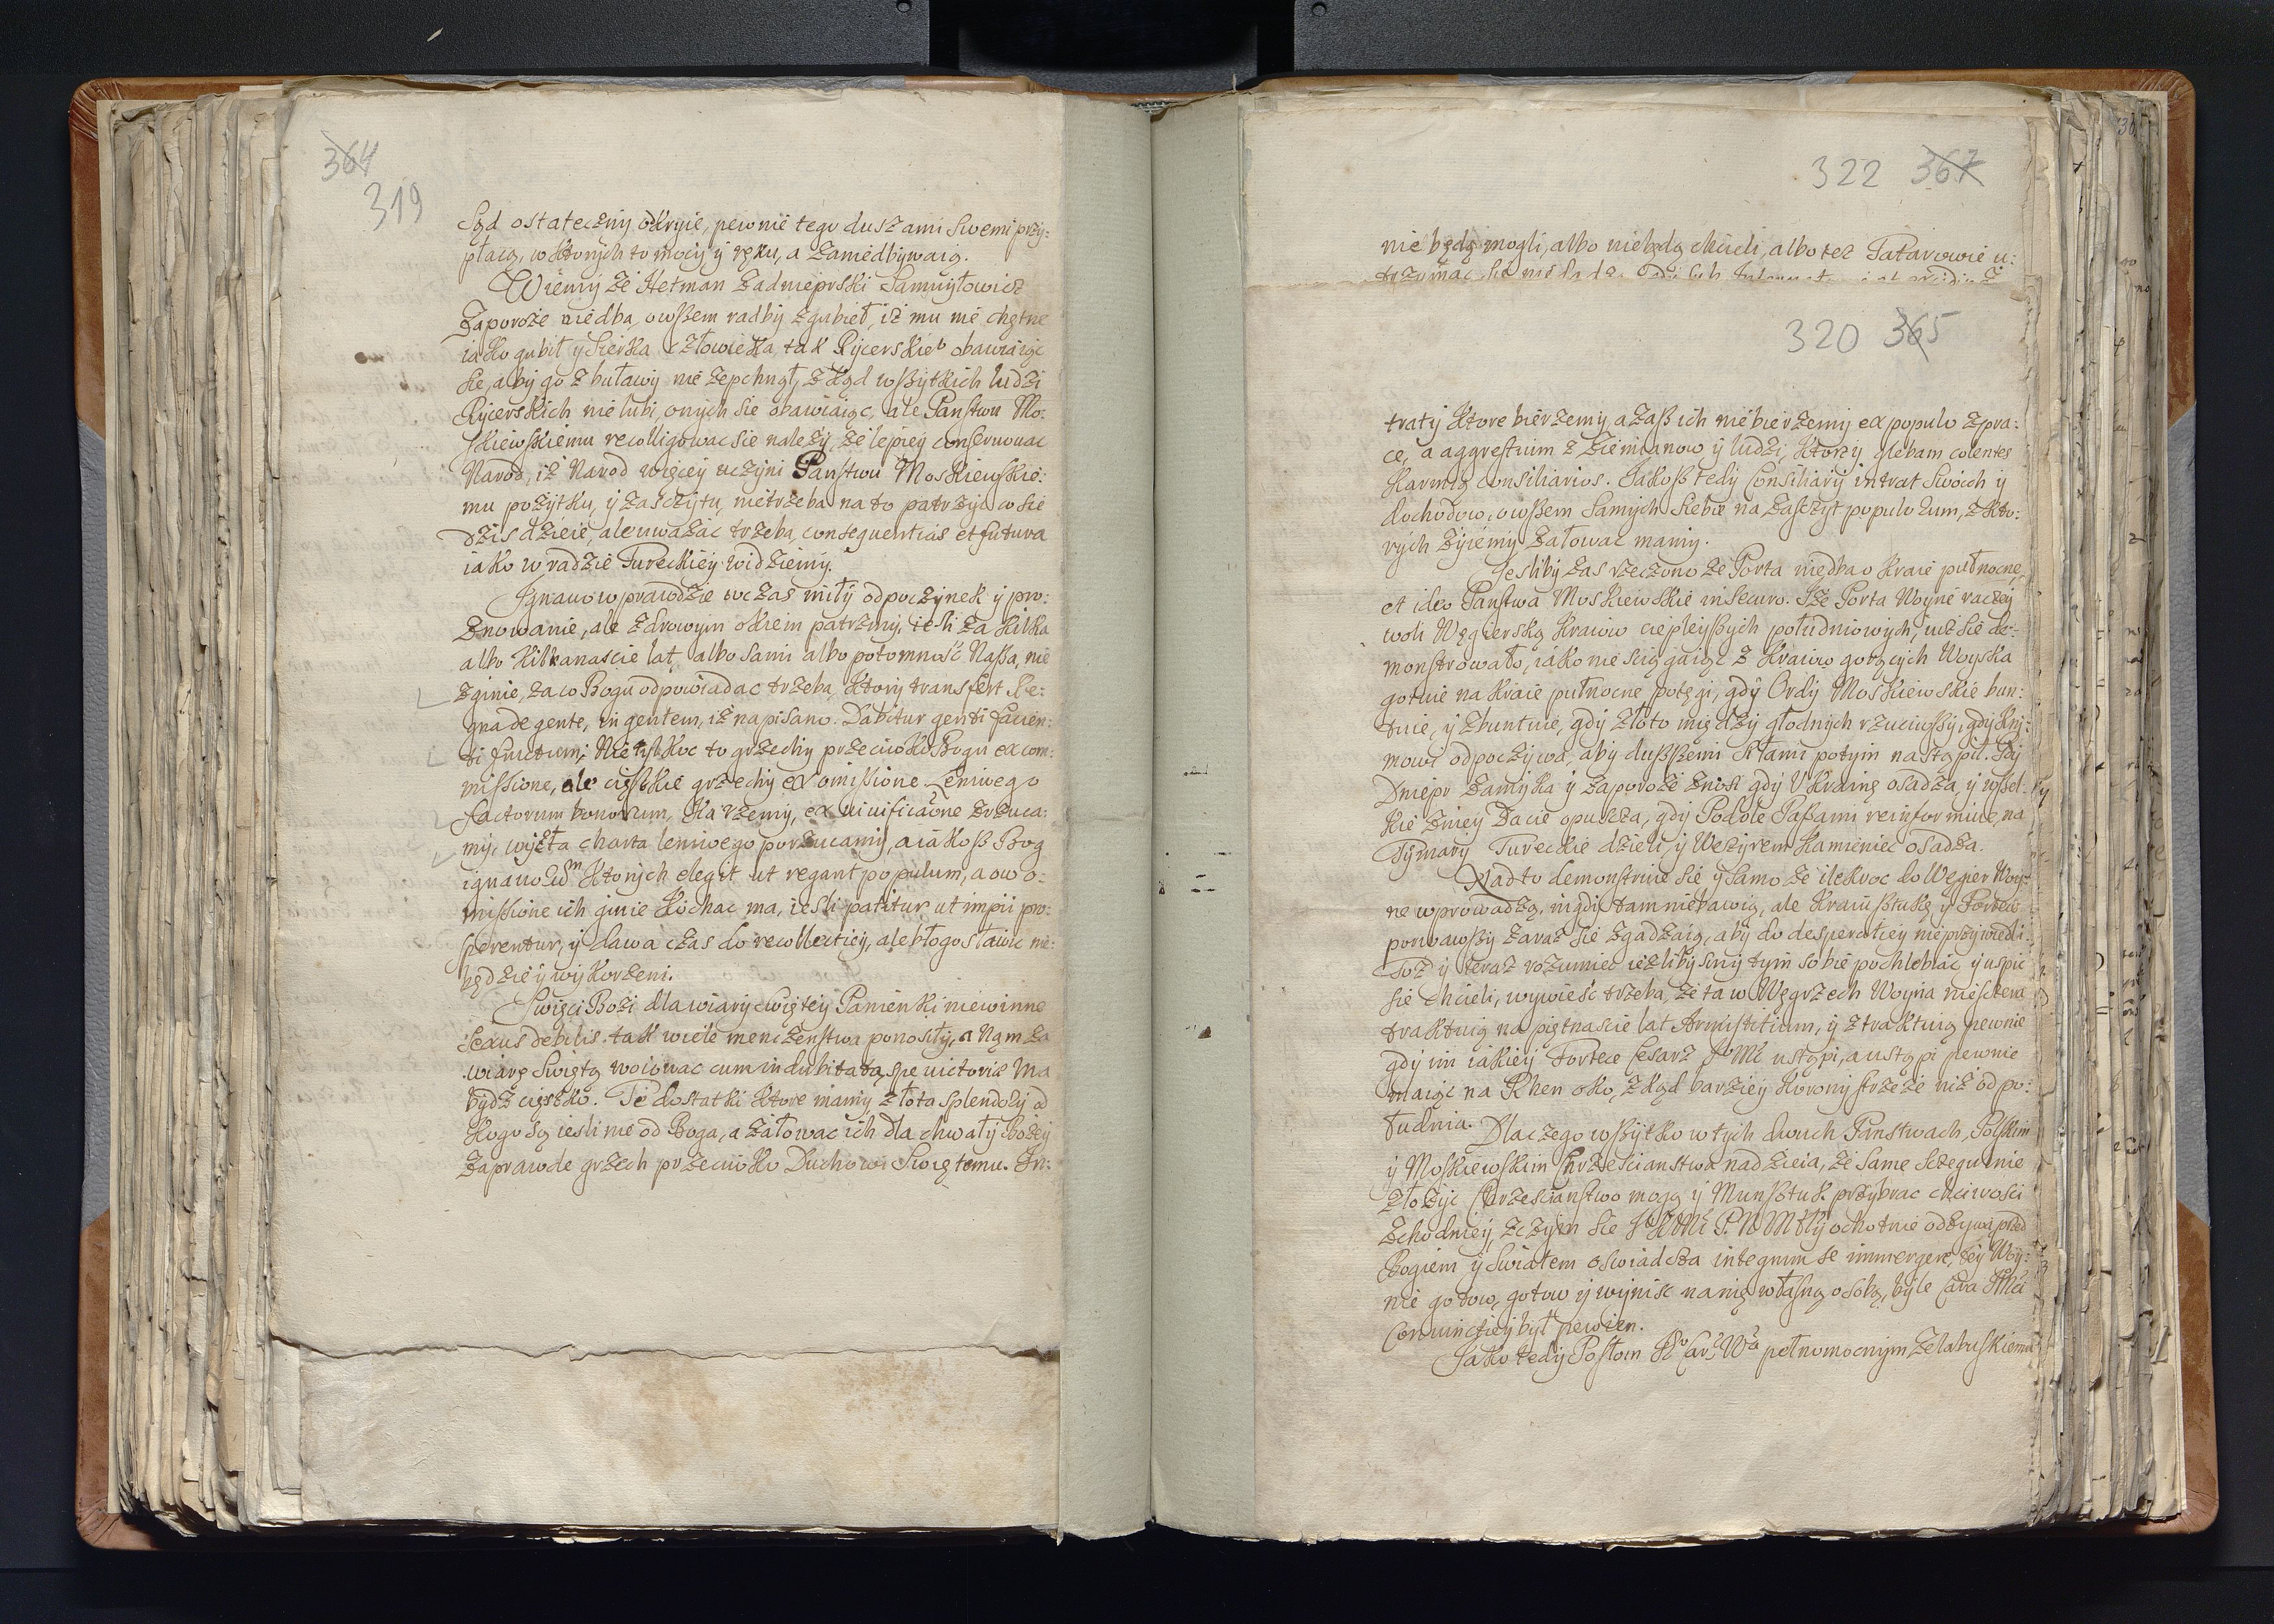 364
319
Sąd ostateczny odkryie, pewnie tego duszami swemi przy:
płacą, w ktorych to mocy y ręku, a zaniedbywaią.
Wiemy że Hetman Zadnieprski Samuyłowicz
Zaporoże niedba, owszem radby zgubieł, iż mu nie chętne
iako gubił y Sierka człowieka tak Rycerskieo obawiaiąc
sie, aby go z buławy nie zepchnął, zkąd wszytkich ludzi
Rycerskich nie lubi, onych sie obawiaiąc, ale Panstwu Mo:
skiewskiemu recolligowac sie należy, że lepiey conservowac
Narod, iż Narod więcey uczyni Panstwu Moskiewskie:
mu pożytku, y zasczytu, nietrzeba na to patrzyc co sie
dzis dzieie, ale uważac trzeba, consequentias et futura
iako w radzie Tureckiey widziemy.
Ignauow prawdzie wczas miły odpoczynek y pro:
żnowanie, ale zdrowym okiem patrzmy, iesli za kilka
albo kilkanascie lat, albo sami albo potomność Nasza, nie
zginie, za co Bogu odpowiadac trzeba, ktory transfert Re:
gna de gente, in gentem, iż napisano. Dabitur genti facien:
ti fructum; Nie tylkoc to grzechy przeciwko Bogu ex com:
missione, ale cięszkie grzechy ex omissione Leniwego
factorum bonorum, Karzemy, ex vivificaone zrzuca:
my, wyżła charta leniwego porzucamy, a iakosz Bog
ktorych elegit ut regant populum, a ow o:
missione ich ginie kochac ma, iesli patitur ut impii pro:
sperentur, y dawa czas do recollectiey, ale błogosławic nie:
będzie y wykorzeni.
Swięci Boży dla wiary Swiętey Panienki niewinne
sexus debilis tak wiele menczenstwa ponosiły, a Nąm za
wiarę Swiętą woiowac cum indubitata spe victoriæ ma
bydz cięszko. Te dostatki ktore mamy złota splendory od
kogo są iesli nie od Boga, a żałowac ich dla chwały Bożey
zaprawde grzech przeciwko Duchowi Swiętemu. In:
322 367
nie będą mogli, albo niebędą chcieli, albo tez Tatarowie u:
320 365
traty ktore bierzemy a zasz ich niebierzemy ex populo z pra:
ce, a aggrestium z ziemianow y ludzi, ktorzy glebam colentes
karmią consiliarios. Jakosz tedy Consiliarij intrat swoich y
dochodow, owszem samych siebie na zasczyt populorum, z kto:
rych żyiemy żałowac mamy.
Jesliby zas rzeczono że Porta niedba o kraie pułnocne,
et ideo Panstwa Moskiewskie in securo. Że Porta Woynę raczey
woli Węgierską kraiow ciepleyszych południowych, iuż sie de:
monstrowało, iako nie sciągaiąc z kraiow gorących Woyska
gotuie na kraie pułnocne potęgi, gdy Ordy Moskiewskie bun:
tuie, y zbuntuie, gdy złoto między głodnych rzuciwszy, gdy Kry:
mowi odpoczywa, aby duszszemi siłami potym nastąpił. Gdy
Dniepr zamyka y Zaporoże znosi gdy Ukrainę osadza, y wszel:
kie żniey Dacie opuszcza, gdy Podole Paszami reinformiue, na
Tymary Tureckie dzieli y Wezyrem Kamieniec osadza.
Nad to demonstruie sie y samo że ilekroc do Węgier Woy:
nę wprowadzą, nigdy tam niebawią, ale kraiu sztukę y Fortec
porwawszy zaraz sie zgadzaią, aby do desperatiey nieprzywiedli.
Toż y teraz rozumiec iezlibysmy tym sobie pochlebiac y uspic
sie chcieli, wywieść trzeba, że ta w Węgrzech Woyna nieszczera
traktuią na piętnascie lat Armistitium, y ztraktuią pewnie
gdy im iakiey Fortece Cesarz JoMć ustąpi, a ustąpi pewnie
maiąc na Rhen oko, zkąd barziey korony strzeże niż od po:
łudnia.
Dla czego wszytko w tych dwuch Panstwach, Polskim
y Moskiewskim Chrzescianstwa nadzieia, że same sczegulnie
złożyc Chrzescianstwo mogą y Munsztuk przybrac chciwosci
zchodniey, zczym sie J K Mć P. N. Mły ochotnie odzywa przed
Bogiem y Swiatem oswiadcza integrum se immergere, tey Woy:
nie gotow, gotow y wynisc na nię własną osobą, byle Cara JMci
Coniunctiey był pewien.
Jako tedy Posłom pełnomocnym Zelabuskiemu